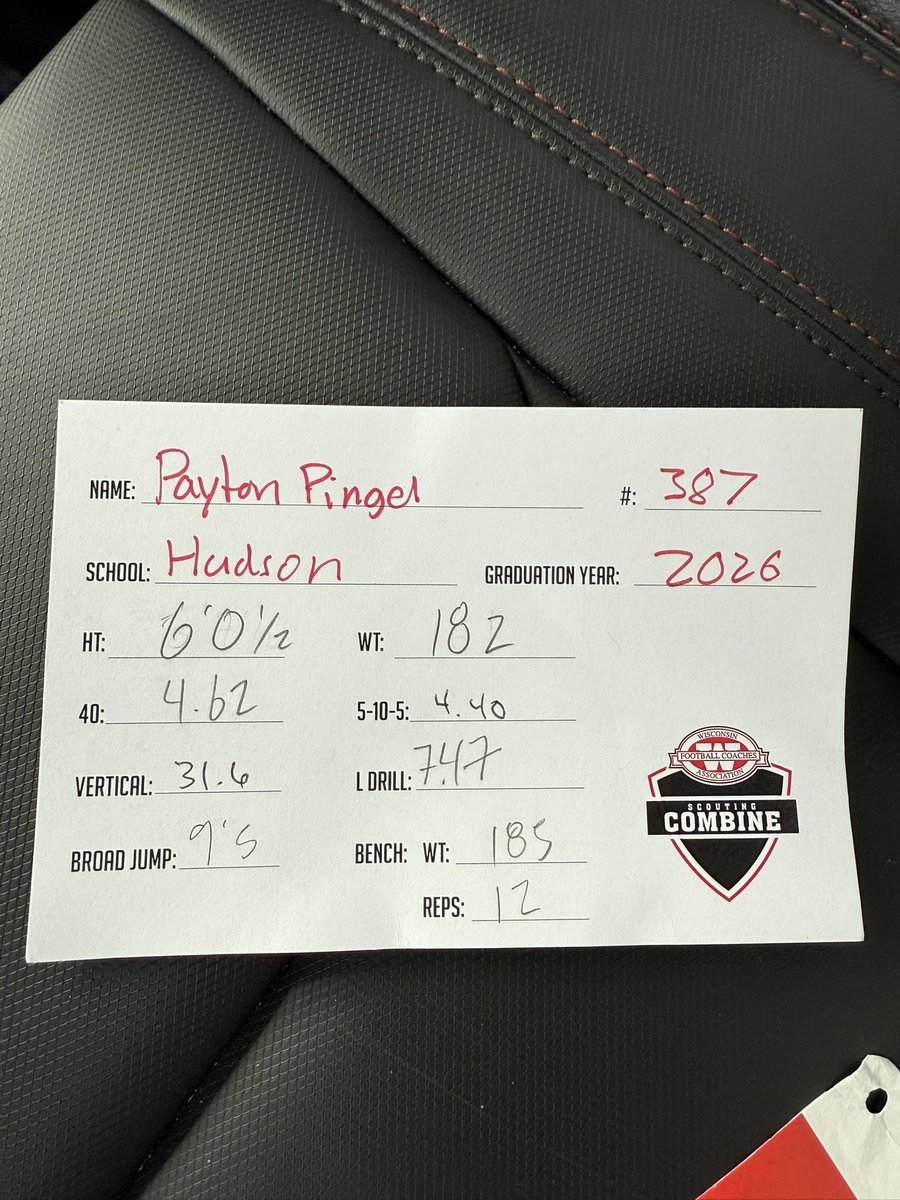 NAME: Payton Pingel #: 387
SCHOOL: Hudson GRADUATION YEAR: 2026
HT: 6'0½ WT: 182
40: 4.62 5-10-5: 4.40
VERTICAL: 31.6 L DRILL: 7.47
BROAD JUMP: 9'5 BENCH: WT: 185
REPS: 12
WISCONSIN
FOOTBALL COACHES
W
ASSOCIATION
SCOUTING
COMBINE